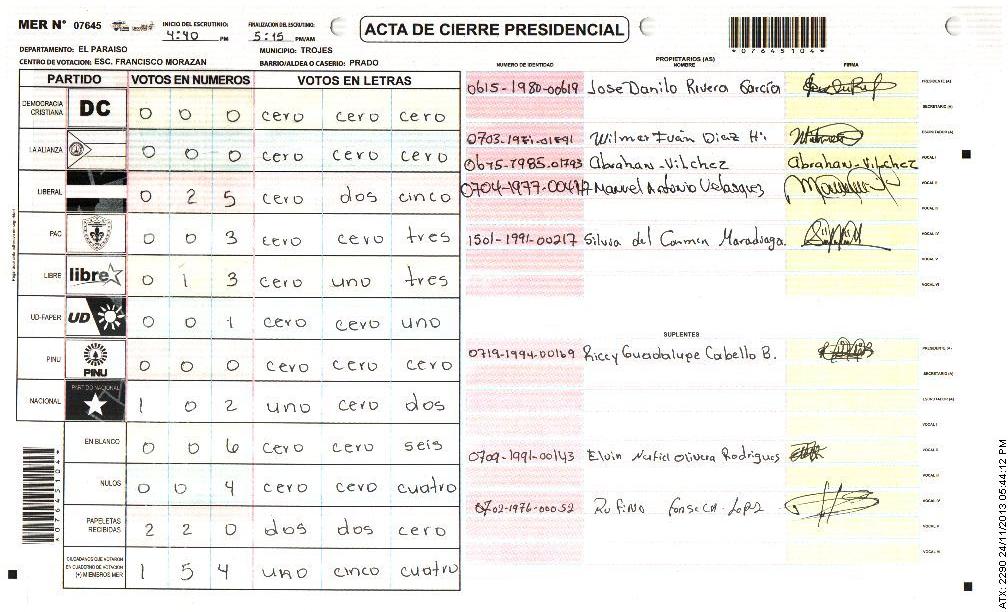 MER N° 07645
INICIO DEL ESCRUTINIO: 4:40 PM
FINALIZACION DEL ESCRUTINIO: 5:15 PM/AM
ACTA DE CIERRE PRESIDENCIAL
*07645104*
DEPARTAMENTO: EL PARAISO
MUNICIPIO: TROJES
CENTRO DE VOTACION: ESC. FRANCISCO MORAZAN
BARRIO/ALDEA O CASERIO: PRADO
PARTIDO VOTOS EN NUMEROS VOTOS EN LETRAS
DEMOCRACIA CRISTIANA DC 0 0 0 cero cero cero
LA ALIANZA 0 0 0 cero cero cero
LIBERAL 0 2 5 cero dos cinco
PAC 0 0 3 cero cero tres
LIBRE libre 0 1 3 cero uno tres
UD-FAPER UD 0 0 1 cero cero uno
PINU PINU 0 0 0 cero cero cero
NACIONAL PARTIDO NACIONAL 1 0 2 uno cero dos
EN BLANCO 0 0 6 cero cero seis
NULOS 0 0 4 cero cero cuatro
PAPELETAS RECIBIDAS 2 2 0 dos dos cero
CIUDADANOS QUE VOTARON EN CUADERNO DE VOTACION (+) MIEMBROS MER 1 5 4 uno cinco cuatro
*07645104*
PROPIETARIOS (AS)
NUMERO DE IDENTIDAD NOMBRE FIRMA
0615-1980-00619 Jose Danilo Rivera García PRESIDENTE (A)
SECRETARIO (A)
0703-1971-01891 Wilmer Iván Diaz H. ESCRUTADOR (A)
0615-1985-01793 Abrahan-Vilchez Abrahan-Vilchez VOCAL I
0704-1977-00417 Manuel Antonio Velasquez VOCAL II
VOCAL III
1501-1991-00217 Silvia del Carmen Maradiaga. VOCAL IV
VOCAL V
VOCAL VI
SUPLENTES
0719-1994-00169 Riccy Guadalupe Cabello B. PRESIDENTE (A)
SECRETARIO (A)
ESCRUTADOR (A)
VOCAL I
0709-1991-00143 Elvin Olivera Rodrigues VOCAL II
VOCAL III
0702-1976-00052 Rufino Fonseca Lopez VOCAL IV
VOCAL V
VOCAL VI
ATX: 2290 24/11/2013 05:44:12 PM